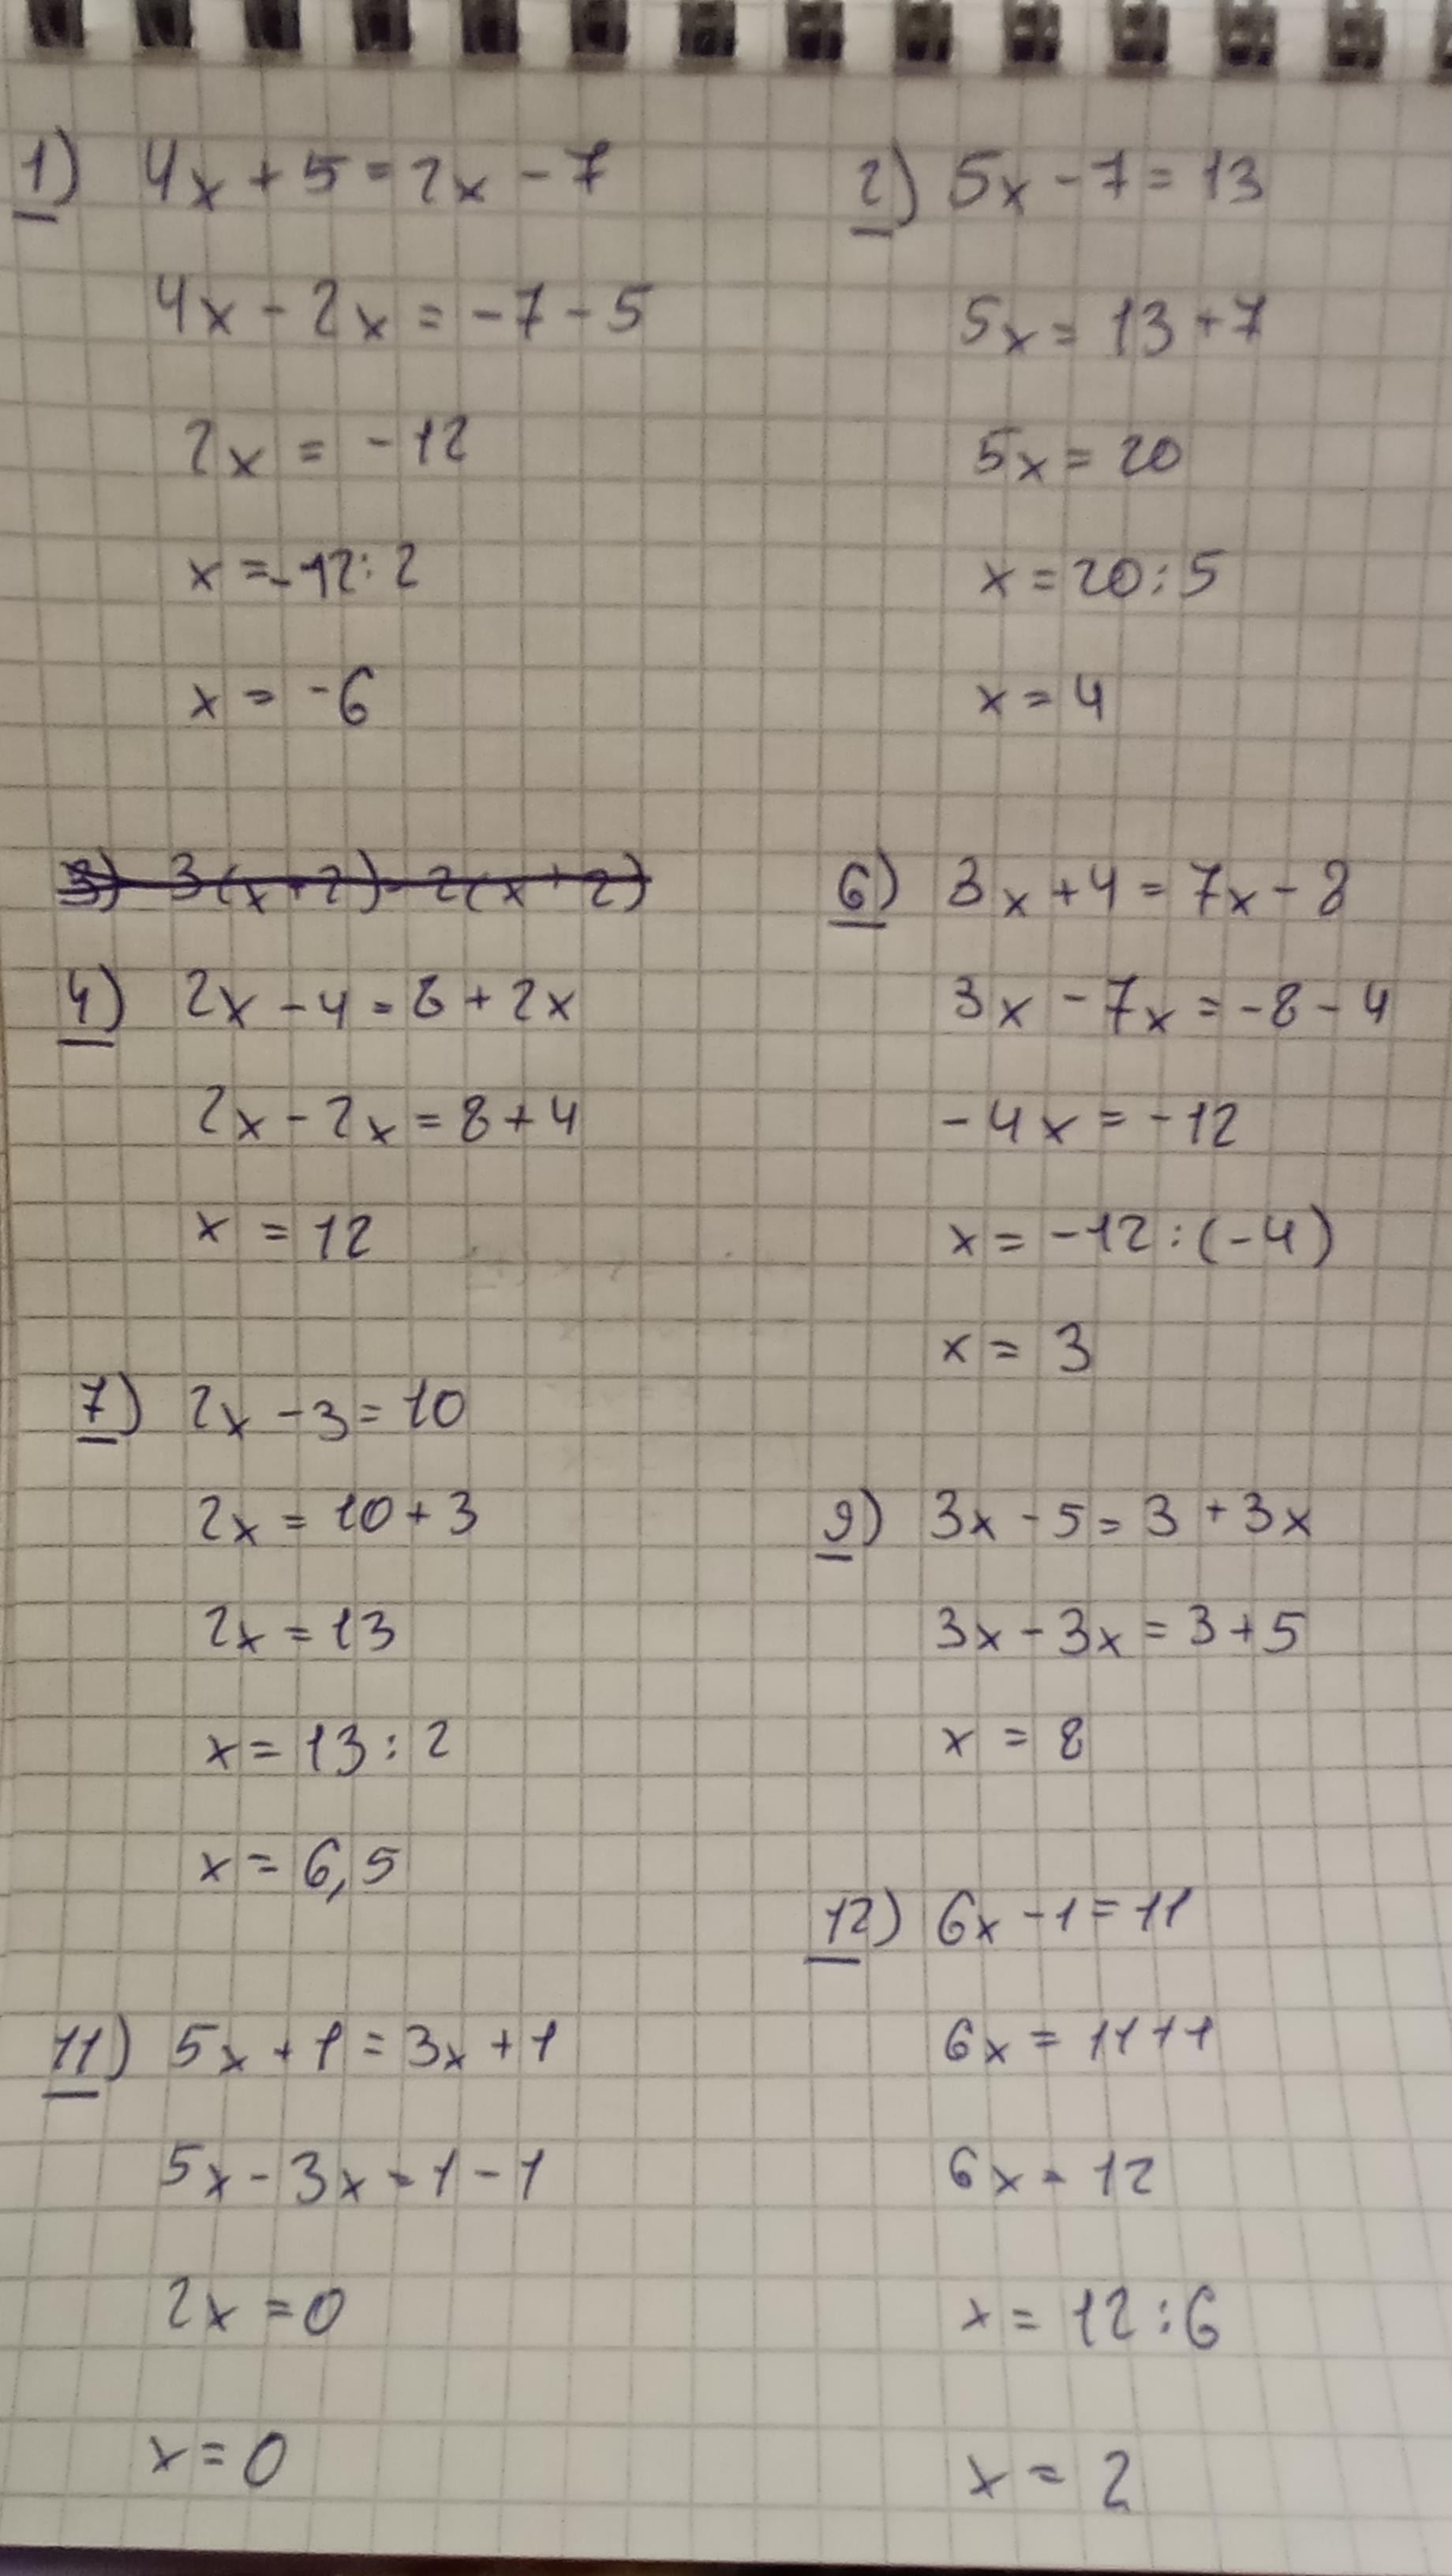 1) 4x + 5 = 2x - 7
4x - 2x = -7 - 5
2x = -12
x = -12 : 2
x = -6
2) 5x - 7 = 13
5x = 13 + 7
5x = 20
x = 20 : 5
x = 4
3) 3(x + 2) - 2(x + 2)
4) 2x - 4 = 8 + 2x
2x - 2x = 8 + 4
x = 12
6) 3x + 4 = 7x - 8
3x - 7x = -8 - 4
-4x = -12
x = -12 : (-4)
x = 3
7) 2x - 3 = 10
2x = 10 + 3
2x = 13
x = 13 : 2
x = 6,5
9) 3x - 5 = 3 + 3x
3x - 3x = 3 + 5
x = 8
11) 5x + 1 = 3x + 1
5x - 3x = 1 - 1
2x = 0
x = 0
12) 6x - 1 = 11
6x = 11 + 1
6x = 12
x = 12 : 6
x = 2